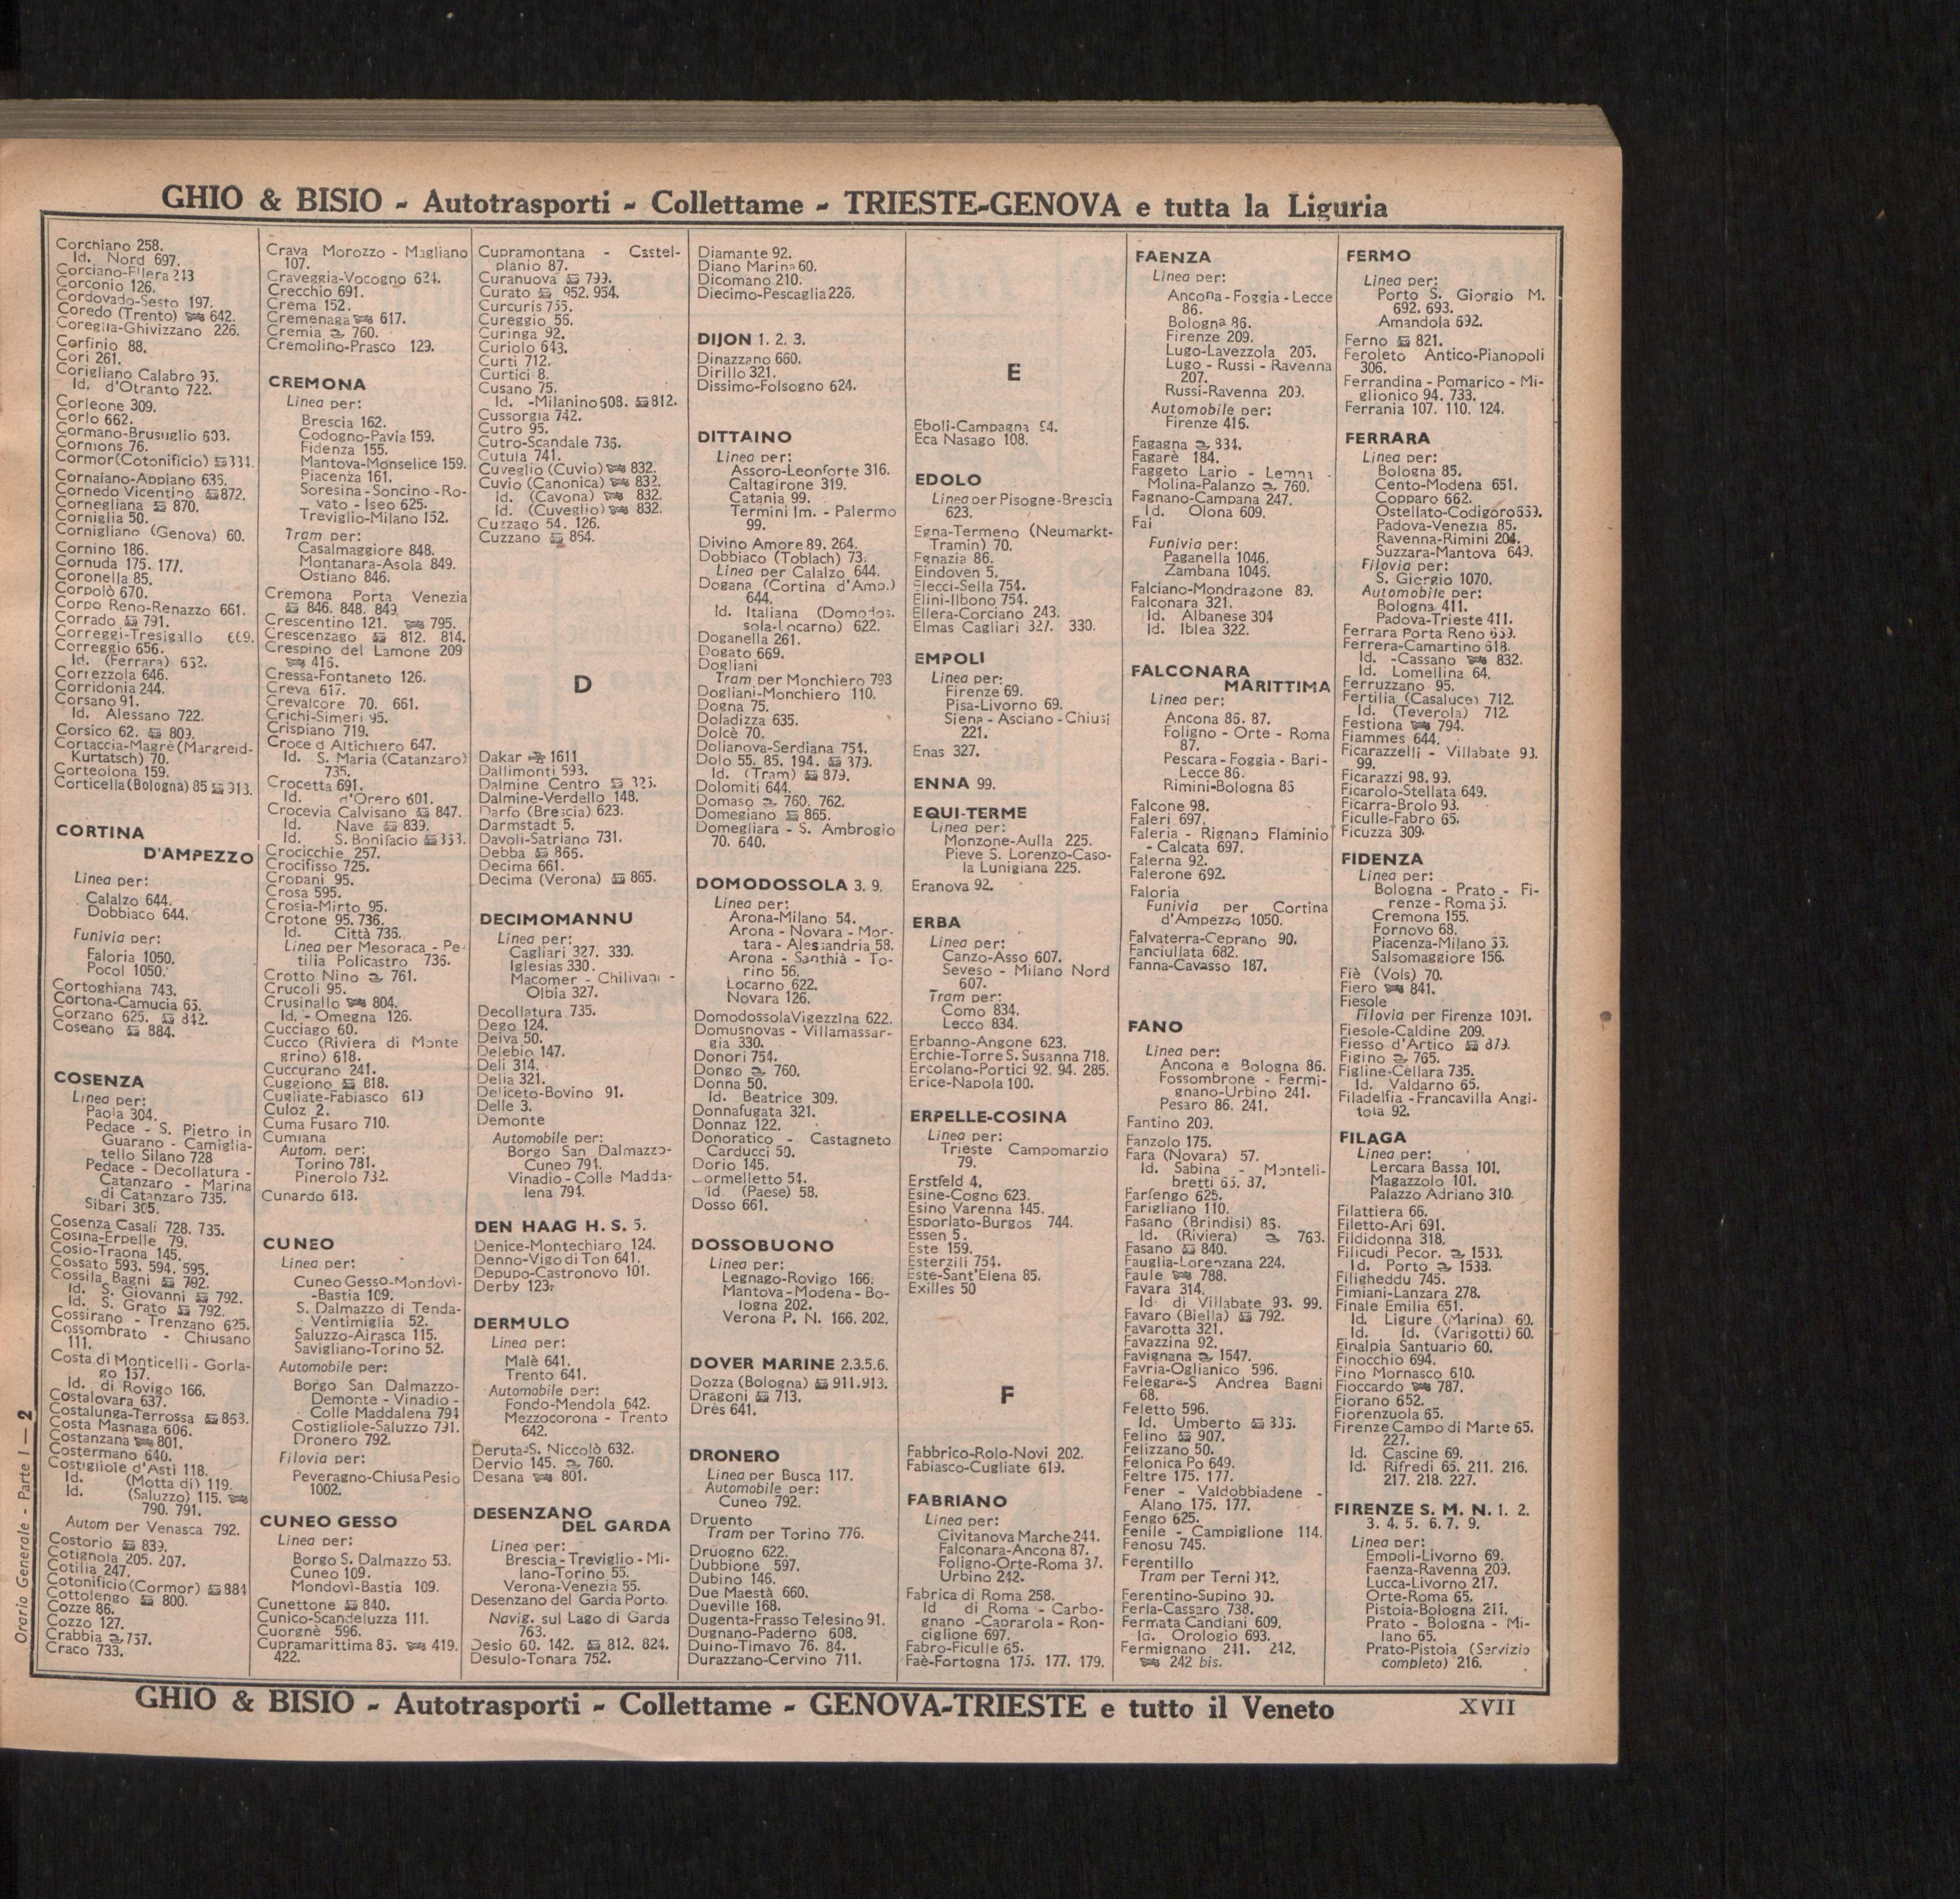 GHIO & BISIO - Autotrasporti - Collettame - TRIESTE-GENOVA e tutta la Liguria
Corchiano 258.
Id. Nord 697.
Corciano-Ellera 243
Corconio 126.
Cordovado-Sesto 197.
Coredo (Trento) 642.
Coreglia-Ghivizzano 226.
Corfinio 88.
Cori 261.
Corigliano Calabro 95.
Id. d'Otranto 722.
Corleone 309.
Corlo 662.
Cormano-Brusuglio 603.
Cormons 76.
Cormor (Cotonificio) 331.
Cornaiano-Appiano 636.
Cornedo Vicentino 872.
Cornegliana 870.
Corniglia 50.
Cornigliano (Genova) 60.
Cornino 186.
Cornuda 175. 177.
Coronella 85.
Corpolò 670.
Corpo Reno-Renazzo 661.
Corrado 791.
Correggi-Tresigallo 669.
Correggio 656.
Id. (Ferrara) 652.
Correzzola 646.
Corridonia 244.
Corsano 91.
Id. Alessano 722.
Corsico 62. 809.
Cortaccia-Magrè (Margreid-
Kurtatsch) 70.
Corteolona 159.
Corticella (Bologna) 85 913.
CORTINA
D'AMPEZZO
Linea per:
Calalzo 644.
Dobbiaco 644.
Funivia per:
Faloria 1050.
Pocol 1050.
Cortoghiana 743.
Cortona-Camucia 65.
Corzano 625. 842.
Coseano 884.
COSENZA
Linea per:
Paola 304.
Pedace - S. Pietro in
Guarano - Camiglia-
tello Silano 728
Pedace - Decollatura -
Catanzaro - Marina
di Catanzaro 735.
Sibari 305.
Cosenza Casali 728. 735.
Cosina-Erpelle 79.
Cosio-Traona 145.
Cossato 593. 594. 595.
Cossila Bagni 792.
Id. S. Giovanni 792.
Id. S. Grato 792.
Cossirano - Trenzano 625.
Cossombrato - Chiusano
111.
Costa di Monticelli - Gorla-
go 137.
Id. di Rovigo 166.
Costalovara 637.
Costalunga-Terrossa 863.
Costa Masnaga 606.
Costanzana 801.
Costermano 640.
Costigliole d'Asti 118.
Id. (Motta di) 119.
Id. (Saluzzo) 115.
790. 791.
Autom per Venasca 792.
Costorio 839.
Cotignola 205. 207.
Cotilia 247.
Cotonificio (Cormor) 884
Cottolengo 800.
Cozze 86.
Cozzo 127.
Crabbia 757.
Craco 733.
Crava Morozzo - Magliano
107.
Craveggia-Vocogno 624.
Crecchio 691.
Crema 152.
Cremenaga 617.
Cremia 760.
Cremolino-Prasco 129.
CREMONA
Linea per:
Brescia 162.
Codogno-Pavia 159.
Fidenza 155.
Mantova-Monselice 159.
Piacenza 161.
Soresina - Soncino - Ro-
vato - Iseo 625.
Treviglio-Milano 152.
Tram per:
Casalmaggiore 848.
Montanara-Asola 849.
Ostiano 846.
Cremona Porta Venezia
846. 848. 849.
Crescentino 121. 795.
Crescenzago 812. 814.
Crespino del Lamone 209
416.
Cressa-Fontaneto 126.
Creva 617.
Crevalcore 70. 661.
Crichi-Simeri 95.
Crispiano 719.
Croce d Altichiero 647.
Id. S. Maria (Catanzaro)
735.
Crocetta 691.
Id. d'Orero 601.
Crocevia Calvisano 847.
Id. Nave 839.
Id. S. Bonifacio 863.
Crocicchie 257.
Crocifisso 725.
Cropani 95.
Crosa 595.
Crosia-Mirto 95.
Crotone 95. 736.
Id. Città 736.
Linea per Mesoraca - Pe-
tilia Policastro 736.
Crotto Nino 761.
Crucoli 95.
Crusinallo 804.
Id. - Omegna 126.
Cucciago 60.
Cucco (Riviera di Monte
grino) 618.
Cuccurano 241.
Cuggiono 818.
Cugliate-Fabiasco 619
Culoz 2.
Cuma Fusaro 710.
Cumiana
Autom. per:
Torino 781.
Pinerolo 732.
Cunardo 618.
CUNEO
Linea per:
Cuneo Gesso-Mondovì-
-Bastia 109.
S. Dalmazzo di Tenda-
Ventimiglia 52.
Saluzzo-Airasca 115.
Savigliano-Torino 52.
Automobile per:
Borgo San Dalmazzo-
Demonte - Vinadio -
Colle Maddalena 794
Costigliole-Saluzzo 791.
Dronero 792.
Filovia per:
Peveragno-Chiusa Pesio
1002.
CUNEO GESSO
Linea per:
Borgo S. Dalmazzo 53.
Cuneo 109.
Mondovì-Bastia 109.
Cunettone 840.
Cunico-Scandeluzza 111.
Cuorgnè 596.
Cupramarittima 85. 419.
422.
Cupramontana - Castel-
planio 87.
Curanuova 799.
Curato 952. 954.
Curcuris 755.
Cureggio 56.
Curinga 92.
Curiolo 643.
Curti 712.
Curtici 8.
Cusano 75.
Id. -Milanino 608. 812.
Cussorgia 742.
Cutro 95.
Cutro-Scandale 736.
Cutula 741.
Cuveglio (Cuvio) 832.
Cuvio (Canonica) 832.
Id. (Cavona) 832.
Id. (Cuveglio) 832.
Cuzzago 54. 126.
Cuzzano 864.
D
Dakar 1611
Dallimonti 593.
Dalmine Centro 325.
Dalmine-Verdello 148.
Darfo (Brescia) 623.
Darmstadt 5.
Davoli-Satriano 731.
Debba 865.
Decima 661.
Decima (Verona) 865.
DECIMOMANNU
Linea per:
Cagliari 327. 330.
Iglesias 330.
Macomer - Chilivani -
Olbia 327.
Decollatura 735.
Dego 124.
Deiva 50.
Delebio 147.
Deli 314.
Delia 321.
Deliceto-Bovino 91.
Delle 3.
Demonte
Automobile per:
Borgo San Dalmazzo-
Cuneo 794.
Vinadio - Colle Madda-
lena 794.
DEN HAAG H. S. 5.
Denice-Montechiaro 124.
Denno-Vigo di Ton 641.
Depupo-Castronovo 101.
Derby 123.
DERMULO
Linea per:
Malè 641.
Trento 641.
Automobile per:
Fondo-Mendola 642.
Mezzocorona - Trento
642.
Deruta-S. Niccolò 632.
Dervio 145. 760.
Desana 801.
DESENZANO
DEL GARDA
Linea per:
Brescia - Treviglio - Mi-
lano-Torino 55.
Verona-Venezia 55.
Desenzano del Garda Porto.
Navig. sul Lago di Garda
763.
Desio 60. 142. 812. 824.
Desulo-Tonara 752.
Diamante 92.
Diano Marina 60.
Dicomano 210.
Diecimo-Pescaglia 226.
DIJON 1. 2. 3.
Dinazzano 660.
Dirillo 321.
Dissimo-Folsogno 624.
DITTAINO
Linea per:
Assoro-Leonforte 316.
Caltagirone 319.
Catania 99.
Termini Im. - Palermo
99.
Divino Amore 89. 264.
Dobbiaco (Toblach) 73.
Linea per Calalzo 644.
Dogana (Cortina d'Amp.)
644.
Id. Italiana (Domodos.
sola-Locarno) 622.
Doganella 261.
Dogato 669.
Dogliani
Tram per Monchiero 793
Dogliani-Monchiero 110.
Dogna 75.
Doladizza 635.
Dolcè 70.
Dolianova-Serdiana 754.
Dolo 55. 85. 194. 379.
Id. (Tram) 879.
Dolomiti 644.
Domaso 760. 762.
Domegiano 865.
Domegliara - S. Ambrogio
70. 640.
DOMODOSSOLA 3. 9.
Linea per:
Arona-Milano 54.
Arona - Novara - Mor-
tara - Alessandria 58.
Arona - Santhià - To-
rino 56.
Locarno 622.
Novara 126.
Domodossola Vigezzina 622.
Domusnovas - Villamassar-
gia 330.
Donori 754.
Dongo 760.
Donna 50.
Id. Beatrice 309.
Donnafugata 321.
Donnaz 122.
Donoratico - Castagneto
Carducci 50.
Dorio 145.
ormelletto 54.
Id. (Paese) 58.
Dosso 661.
DOSSOBUONO
Linea per:
Legnago-Rovigo 166.
Mantova - Modena - Bo-
logna 202.
Verona P. N. 166. 202.
DOVER MARINE 2.3.5.6.
Dozza (Bologna) 911.913.
Dragoni 713.
Drès 641.
DRONERO
Linea per Busca 117.
Automobile per:
Cuneo 792.
Druento
Tram per Torino 776.
Druogno 622.
Dubbione 597.
Dubino 146.
Due Maestà 660.
Dueville 168.
Dugenta-Frasso Telesino 91.
Dugnano-Paderno 608.
Duino-Timavo 76. 84.
Durazzano-Cervino 711.
E
Eboli-Campagna 94.
Eca Nasago 108.
EDOLO
Linea per Pisogne-Brescia
623.
Egna-Termeno (Neumarkt-
Tramin) 70.
Egnazia 86.
Eindoven 5.
Elecci-Sella 754.
Elini-Ilbono 754.
Ellera-Corciano 243.
Elmas Cagliari 327. 330.
EMPOLI
Linea per:
Firenze 69.
Pisa-Livorno 69.
Siena - Asciano - Chiusi
221.
Enas 327.
ENNA 99.
EQUI-TERME
Linea per:
Monzone-Aulla 225.
Pieve S. Lorenzo-Caso-
la Lunigiana 225.
Eranova 92.
ERBA
Linea per:
Canzo-Asso 607.
Seveso - Milano Nord
607.
Tram per:
Como 834.
Lecco 834.
Erbanno-Angone 623.
Erchie-Torre S. Susanna 718.
Ercolano-Portici 92. 94. 285.
Erice-Napola 100.
ERPELLE-COSINA
Linea per:
Trieste Campomarzio
79.
Erstfeld 4.
Esine-Cogno 623.
Esino Varenna 145.
Esporlato-Burgos 744.
Essen 5.
Este 159.
Esterzili 754.
Este-Sant'Elena 85.
Exilles 50
F
Fabbrico-Rolo-Novi 202.
Fabiasco-Cugliate 619.
FABRIANO
Linea per:
Civitanova Marche 244.
Falconara-Ancona 87.
Foligno-Orte-Roma 37.
Urbino 242.
Fabrica di Roma 258.
Id di Roma - Carbo-
gnano -Caprarola - Ron-
ciglione 697.
Fabro-Ficulle 65.
Faè-Fortogna 175. 177. 179.
FAENZA
Linea per:
Ancona - Foggia - Lecce
86.
Bologna 86.
Firenze 209.
Lugo-Lavezzola 205.
Lugo - Russi - Ravenna
207.
Russi-Ravenna 209.
Automobile per:
Firenze 416.
Fagagna 334.
Fagarè 184.
Faggeto Lario - Lemna -
Molina-Palanzo 760.
Fagnano-Campana 247.
Id. Olona 609.
Fai
Funivia per:
Paganella 1046.
Zambana 1046.
Falciano-Mondragone 89.
Falconara 321.
Id. Albanese 304
Id. Iblea 322.
FALCONARA
MARITTIMA
Linea per:
Ancona 86. 87.
Foligno - Orte - Roma
87.
Pescara - Foggia - Bari -
Lecce 86.
Rimini-Bologna 86
Falcone 98.
Faleri 697.
Faleria - Rignano Flaminio
- Calcata 697.
Falerna 92.
Falerone 692.
Faloria
Funivia per Cortina
d'Ampezzo 1050.
Falvaterra-Ceprano 90.
Fanciullata 682.
Fanna-Cavasso 187.
FANO
Linea per:
Ancona e Bologna 86.
Fossombrone - Fermi-
gnano-Urbino 241.
Pesaro 86. 241.
Fantino 209.
Fanzolo 175.
Fara (Novara) 57.
Id. Sabina - Monteli-
bretti 65. 37.
Farfengo 625.
Farigliano 110.
Fasano (Brindisi) 86.
Id. (Riviera) 763.
Fasano 840.
Fauglia-Lorenzana 224.
Faule 788.
Favara 314.
Id di Villabate 93. 99.
Favaro (Biella) 792.
Favarotta 321.
Favazzina 92.
Favignana 1547.
Favria-Oglianico 596.
Felegara-S Andrea Bagni
68.
Feletto 596.
Id. Umberto 335.
Felino 907.
Felizzano 50.
Felonica Po 649.
Feltre 175. 177.
Fener - Valdobbiadene -
Alano 175. 177.
Fengo 625.
Fenile - Campiglione 114.
Fenosu 745.
Ferentillo
Tram per Terni 342.
Ferentino-Supino 90.
Ferla-Cassaro 738.
Fermata Candiani 609.
Id. Orologio 693.
Fermignano 241. 242.
242 bis.
FERMO
Linea per:
Porto S. Giorgio M.
692. 693.
Amandola 692.
Ferno 821.
Feroleto Antico-Pianopoli
306.
Ferrandina - Pomarico - Mi-
glionico 94. 733.
Ferrania 107. 110. 124.
FERRARA
Linea per:
Bologna 85.
Cento-Modena 651.
Copparo 662.
Ostellato-Codigoro 659.
Padova-Venezia 85.
Ravenna-Rimini 204.
Suzzara-Mantova 649.
Filovia per:
S. Giorgio 1070.
Automobile per:
Bologna 411.
Padova-Trieste 411.
Ferrara Porta Reno 659.
Ferrera-Camartino 618.
Id. -Cassano 832.
Id. Lomellina 64.
Ferruzzano 95.
Fertilia (Casaluce) 712.
Id. (Teverola) 712.
Festiona 794.
Fiammes 644.
Ficarazzelli - Villabate 93.
99.
Ficarazzi 98. 99.
Ficarolo-Stellata 649.
Ficarra-Brolo 93.
Ficulle-Fabro 65.
Ficuzza 309.
FIDENZA
Linea per:
Bologna - Prato - Fi-
renze - Roma 65.
Cremona 155.
Fornovo 68.
Piacenza-Milano 65.
Salsomaggiore 156.
Fiè (Vols) 70.
Fiero 841.
Fiesole
Filovia per Firenze 1091.
Fiesole-Caldine 209.
Fiesso d'Artico 879.
Figino 765.
Figline-Cellara 735.
Id. Valdarno 65.
Filadelfia - Francavilla Angi-
tola 92.
FILAGA
Linea per:
Lercara Bassa 101.
Magazzolo 101.
Palazzo Adriano 310.
Filattiera 66.
Filetto-Ari 691.
Fildidonna 318.
Filicudi Pecor. 1533.
Id. Porto 1533.
Filigheddu 745.
Fimiani-Lanzara 278.
Finale Emilia 651.
Id. Ligure (Marina) 60.
Id. Id. (Varigotti) 60.
Finalpia Santuario 60.
Finocchio 694.
Fino Mornasco 610.
Fioccardo 787.
Fiorano 652.
Fiorenzuola 65.
Firenze Campo di Marte 65.
227.
Id. Cascine 69.
Id. Rifredi 65. 211. 216.
217. 218. 227.
FIRENZE S. M. N. 1. 2.
3. 4. 5. 6. 7. 9.
Linea per:
Empoli-Livorno 69.
Faenza-Ravenna 209.
Lucca-Livorno 217.
Orte-Roma 65.
Pistoia-Bologna 211.
Prato - Bologna - Mi-
lano 65.
Prato-Pistoia (Servizio
completo) 216.
Orario Generale - Parte I — 2
GHIO & BISIO - Autotrasporti - Collettame - GENOVA-TRIESTE e tutto il Veneto
XVII